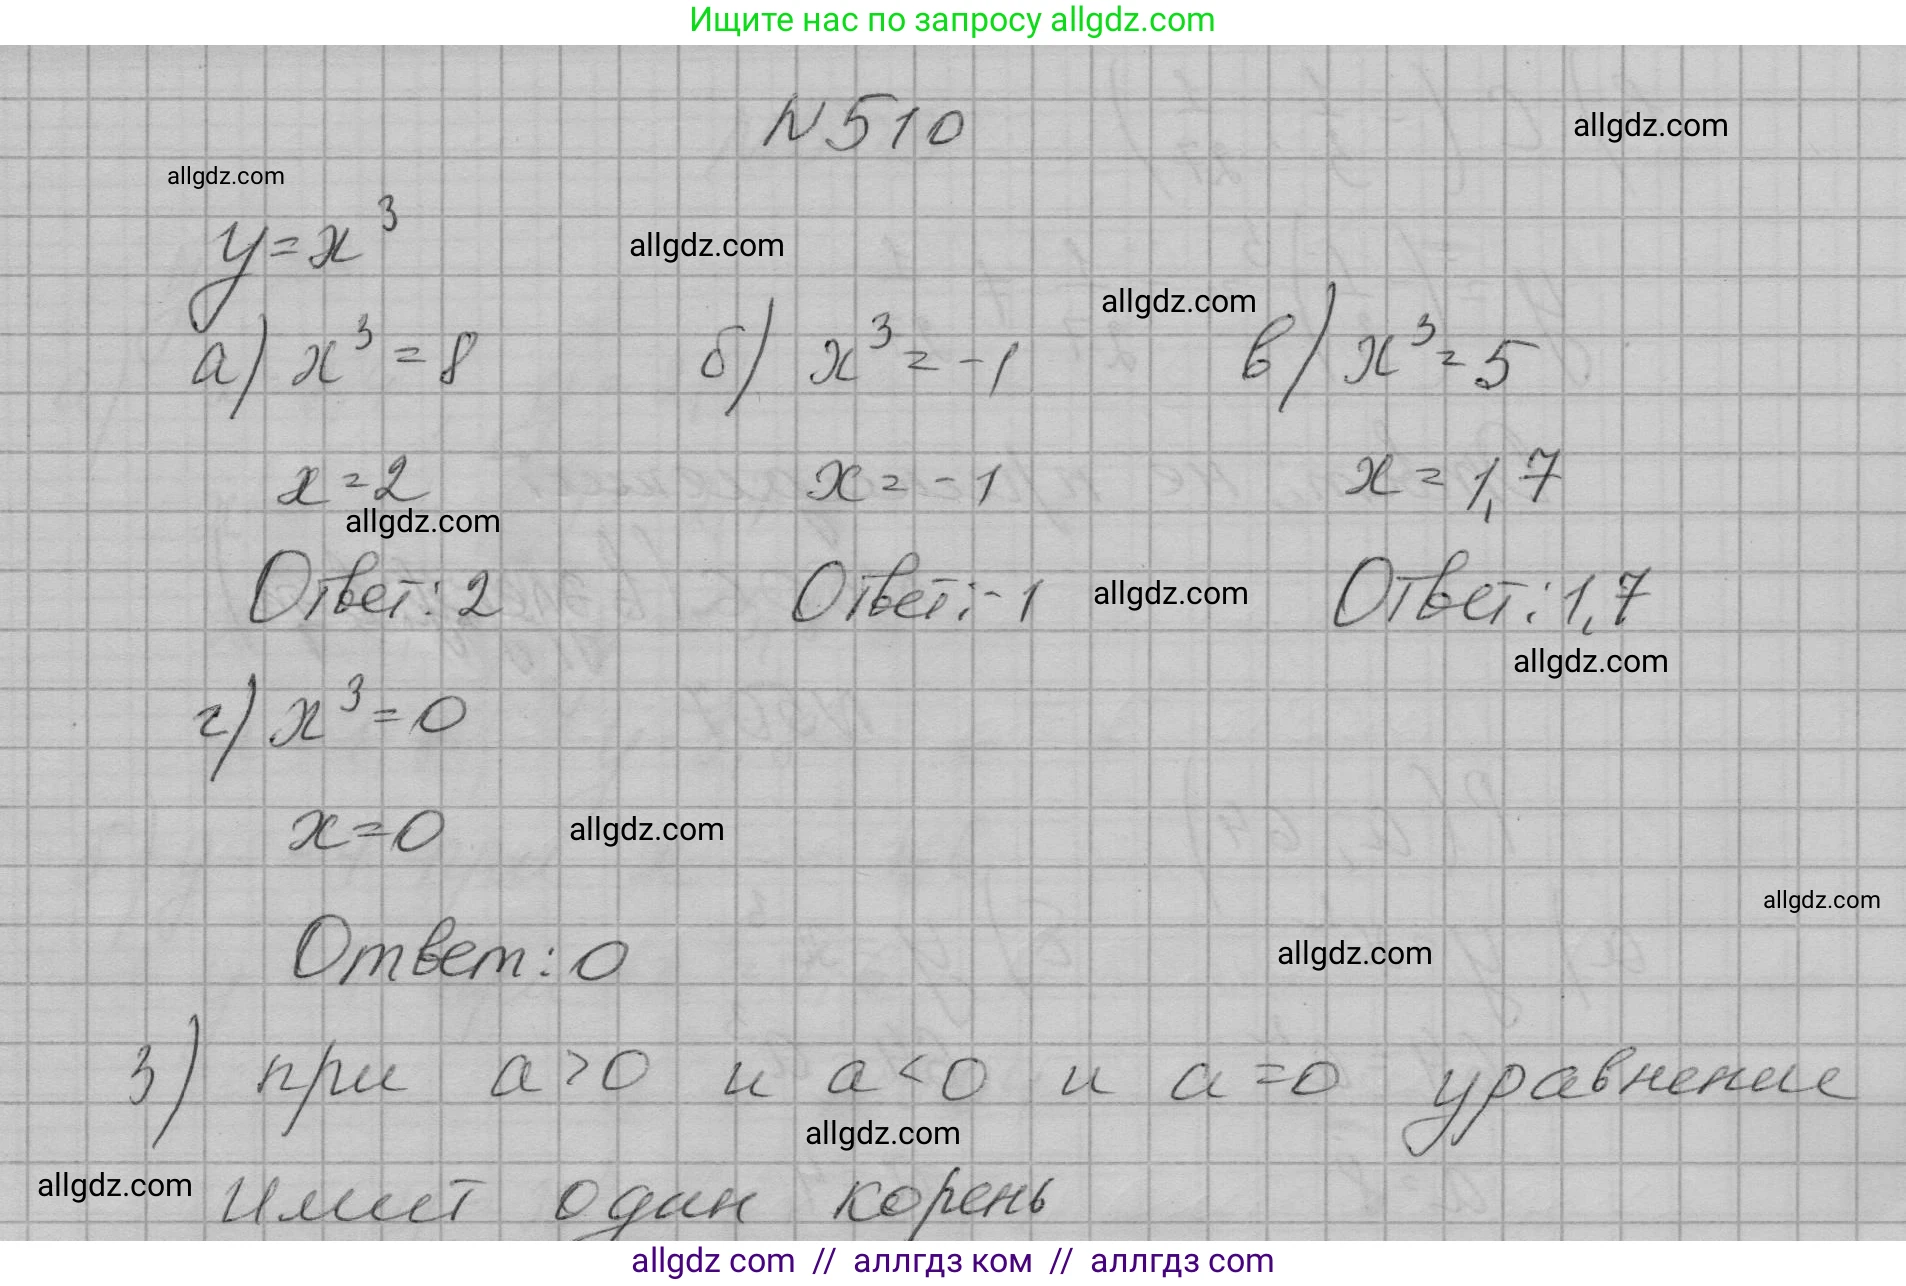 Ищите нас по запросу allgdz.com
N510
allgdz.com
allgdz.com
y=x³
allgdz.com
allgdz.com
а) x³=8 б) x³=-1 в) x³=5
x=2 x=-1 x=1,7
allgdz.com
Ответ: 2 Ответ: -1 allgdz.com Ответ: 1,7
allgdz.com
г) x³=0
x=0 allgdz.com
allgdz.com
Ответ: 0 allgdz.com
3) при a>0 и a<0 и a=0 уравнение
allgdz.com
allgdz.com имеет один корень
allgdz com // аллгдз ком // аллгдз com